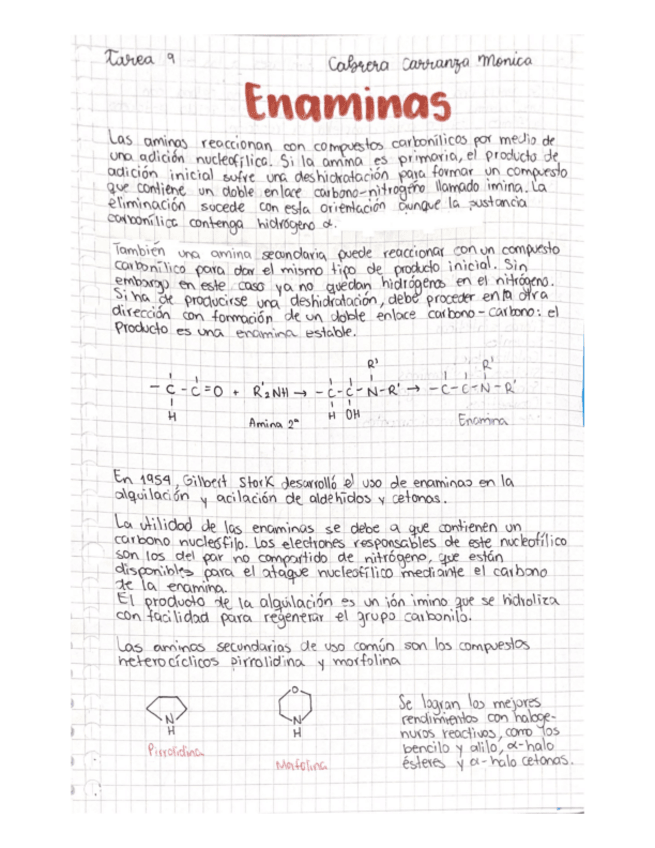 Tarea 9
Cabrera Carranza Monica
Enaminas
Las aminas reaccionan con compuestos carbonílicos por medio de
una adición nucleofílica. Si la amina es primaria, el producto de
adición inicial sufre una deshidratación para formar un compuesto
que contiene un doble enlace carbono-nitrogeno llamado imina. La
eliminación sucede con esta orientación aunque la sustancia
carbonílica contenga hidrógeno α.
También una amina secundaria puede reaccionar con un compuesto
carbonílico para dar el mismo tipo de producto inicial. Sin
embargo en este caso ya no quedan hidrógenos en el nitrógeno.
Si ha de producirse una deshidratación, debe proceder en la otra
dirección con formación de un doble enlace carbono-carbono: el
producto es una enamina estable.
R' R'
-C-C=O + R'₂NH → -C-C-N-R' → -C-C-N-R'
H H OH
Amina 2ª Enamina
En 1954, Gilbert Stork desarrolló el uso de enaminas en la
alquilación y acilación de aldehidos y cetonas.
La utilidad de las enaminas se debe a que contienen un
carbono nucleófilo. Los electrones responsables de este nucleofílico
son los del par no compartido de nitrógeno, que están
disponibles para el ataque nucleofílico mediante el carbono
de la enamina.
El producto de la alquilación es un ión imino que se hidroliza
con facilidad para regenerar el grupo carbonilo.
Las aminas secundarias de uso común son los compuestos
heterocíclicos pirrolidina y morfolina
N
H
Pirrolidina
O
N
H
Morfolina
Se logran los mejores
rendimientos con haloge-
nuros reactivos, como los
bencilo y alilo, α-halo
ésteres y α-halo cetonas.